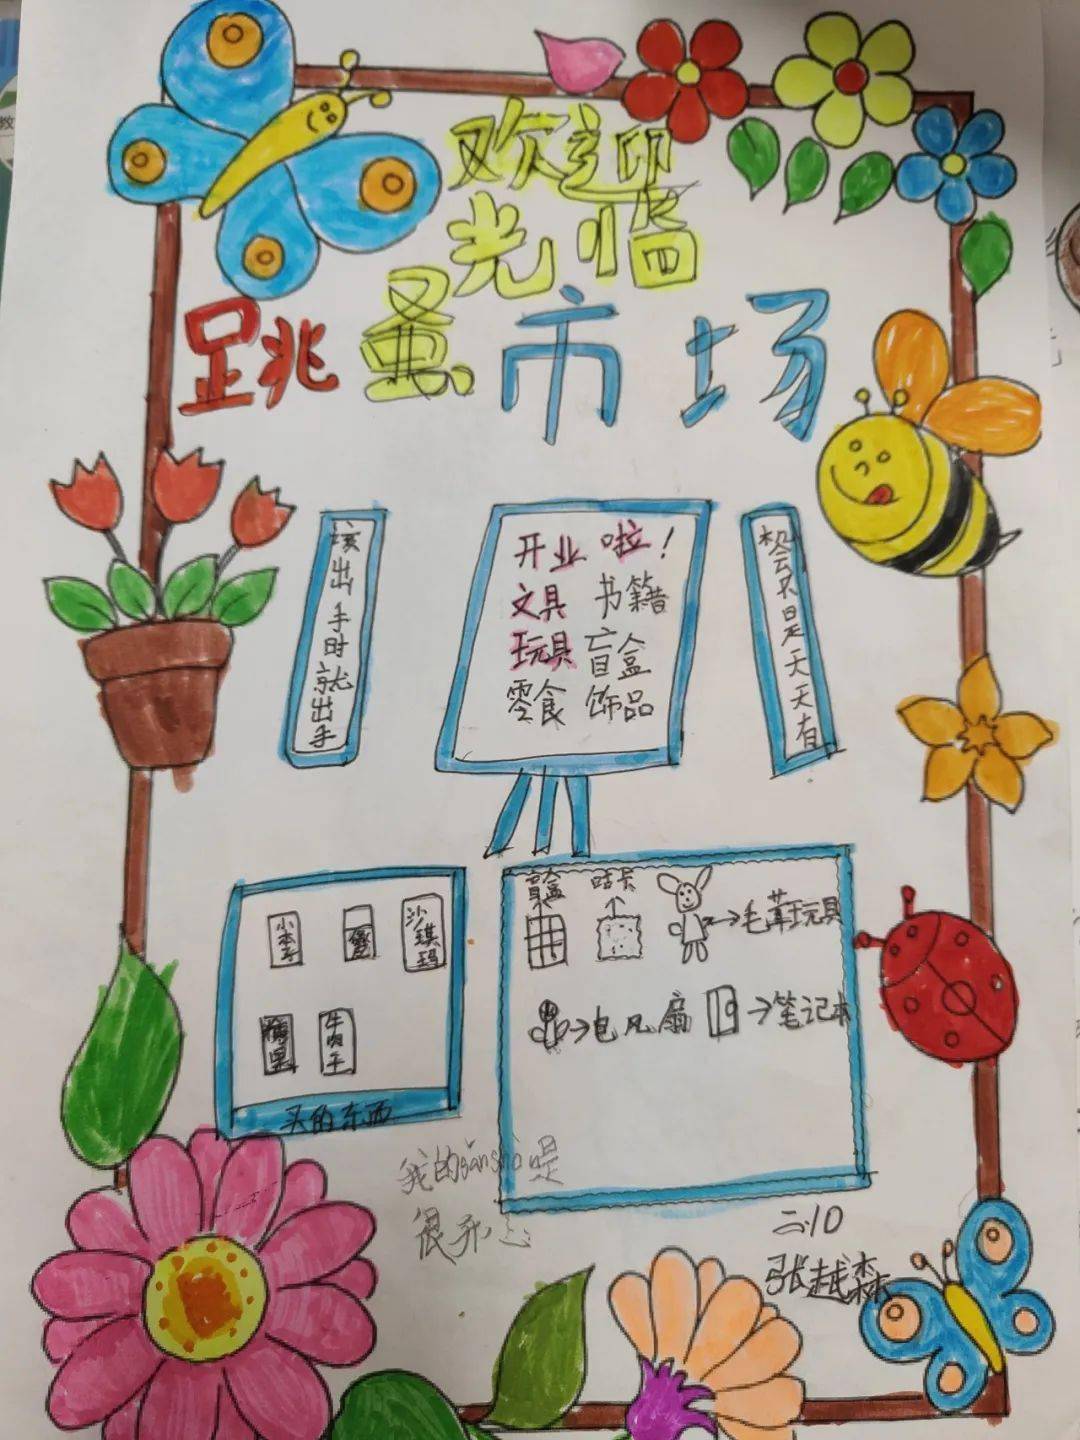 欢迎
光临
跳蚤市场
该出手时就出手
开业啦!
文具 书籍
玩具 盲盒
零食 饰品
机会不是天天有
沙琪玛
牛肉干
买的东西
盲盒 咕卡
毛茸玩具
电风扇
笔记本
我的gǎnshòu是
很开心
二.10
张越森